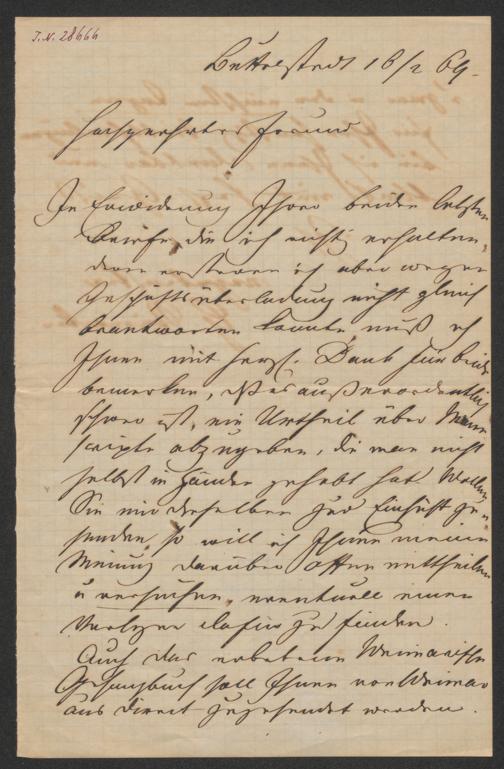 I.N. 28666
Buttelstedt 16/2 69.
Hochgeehrter Freund
In Erwiderung Ihrer beiden letzten
Briefe, die ich richtig erhalten,
deren ersteren ich aber wegen
Geschäftsüberladung nicht gleich
beantworten konnte muß ich
Ihnen mit herzl. Dank für beide
bemerken, daß es außerordentlich
schwer ist, ein Urtheil über Manu-
scripte abzugeben, die man nicht
selbst in Händen gehabt hat. Wollen
Sie mir dieselben zur Einsicht zu-
senden, so will ich Ihnen meine
Meinung darüber offen mittheilen
u versuchen, eventuell einen
Verleger dafür zu finden.
Auch das erbetene Weimarische
Gesangbuch soll Ihnen von Weimar
aus direct zugesendet werden.